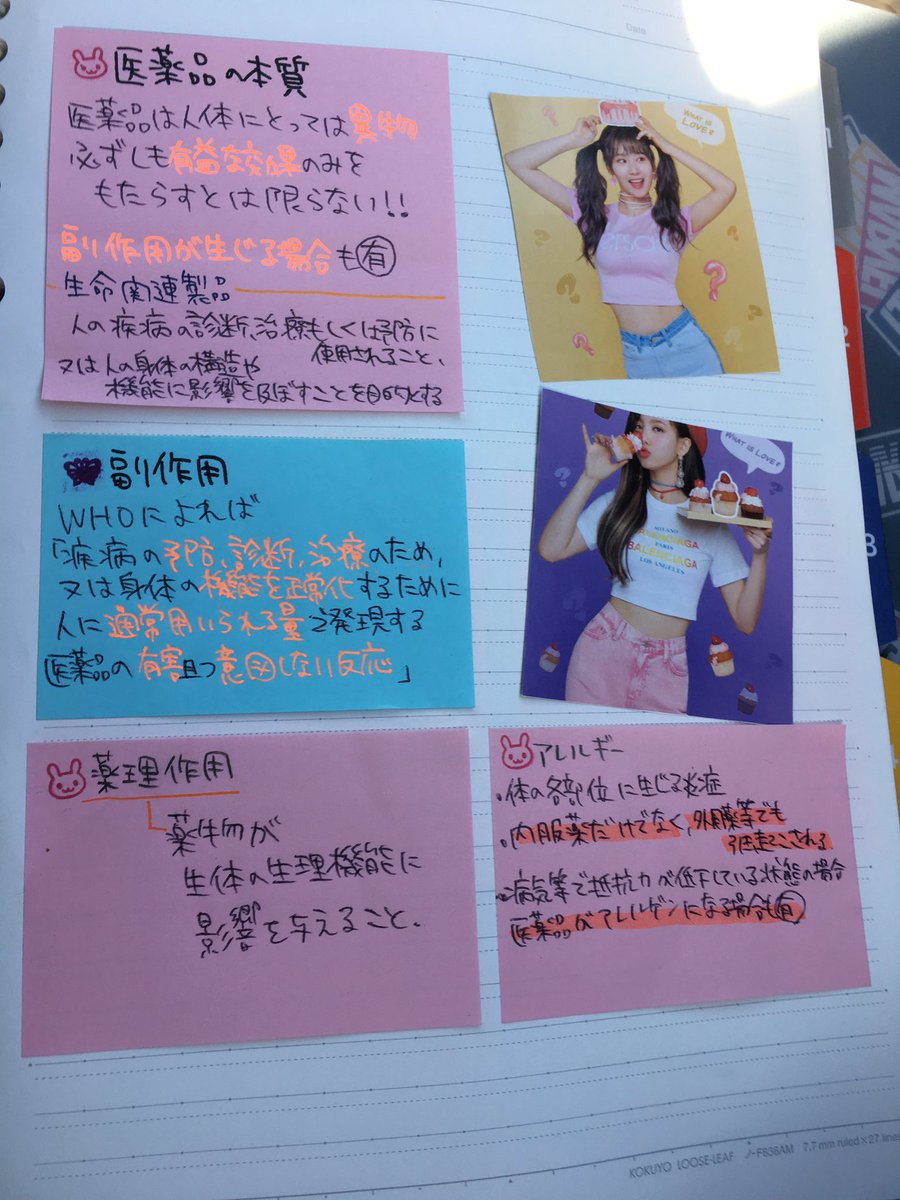 Date
医薬品の本質
医薬品は人体にとっては異物
必ずしも有益な効果のみを
もたらすとは限らない!!
副作用が生じる場合も有
生命関連製品
人の疾病の診断、治療もしくは予防に
使用されること、
又は人の身体の構造や
機能に影響を及ぼすことを目的とする
WHAT IS
LOVE?
副作用
WHOによれば
「疾病の予防、診断、治療のため、
又は身体の機能を正常化するために
人に通常用いられる量で発現する
医薬品の有害且つ意図しない反応」
WHAT IS LOVE?
MILANO
BALENCIAGA
PARIS
BALENCIAGA
LOS ANGELES
薬理作用
薬物が
生体の生理機能に
影響を与えること.
アレルギー
・体の各部位に生じる炎症
・内服薬だけでなく、外用薬等でも
引き起こされる
・病気等で抵抗力が低下している状態の場合
医薬品がアレルゲンになる場合も有
KOKUYO LOOSE-LEAF ノ-F836AM 7.7 mm ruled×27 lines